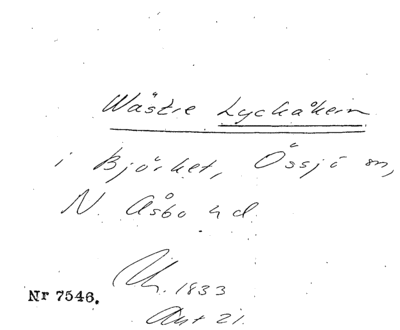 Wästre Lyckåkern
i Björket, Össjö sn,
N. Åsbo hd.
Nr 7546.
1833
Akt 21.